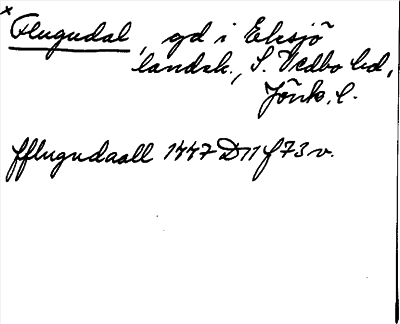 x
Flugudal, gd i Eksjö
landsk., S. Vedbo hd,
Jönk. l.
fflugudaall 1447 D11 f 73 v.